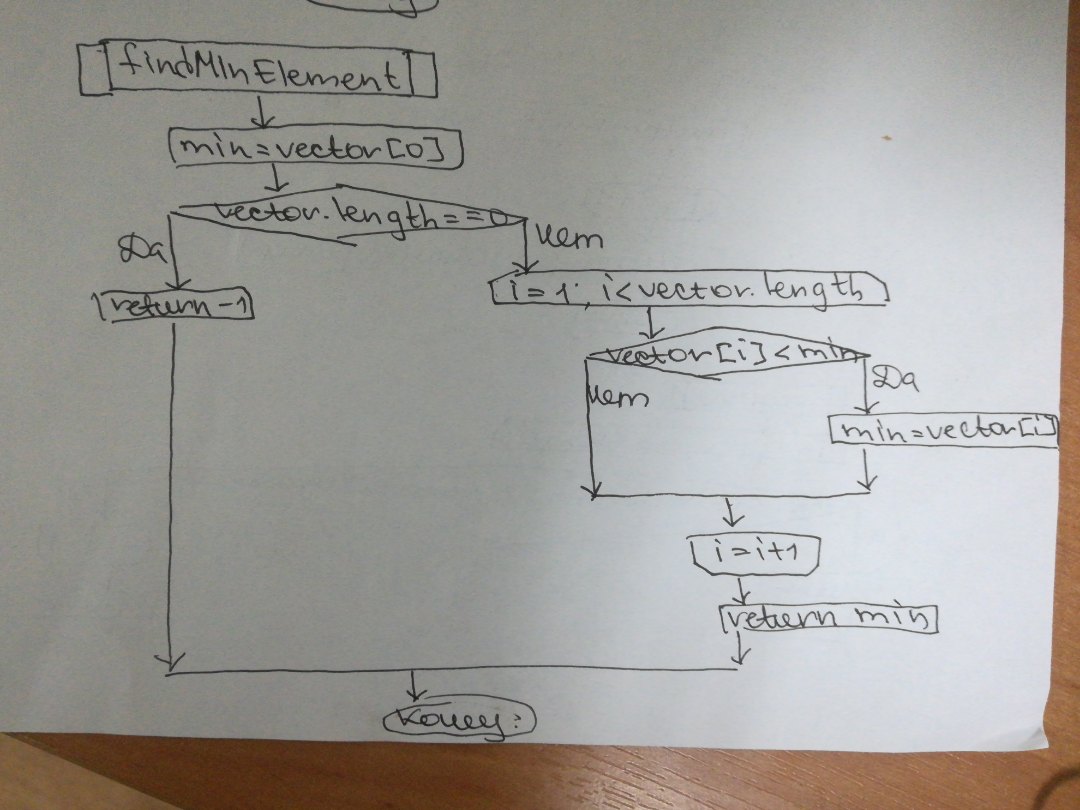 findMinElement
min=vector[0]
vector.length==0
Да
нет
return -1
i=1; i<vector.length
vector[i]<min
нет
Да
min=vector[i]
i=i+1
return min
конец